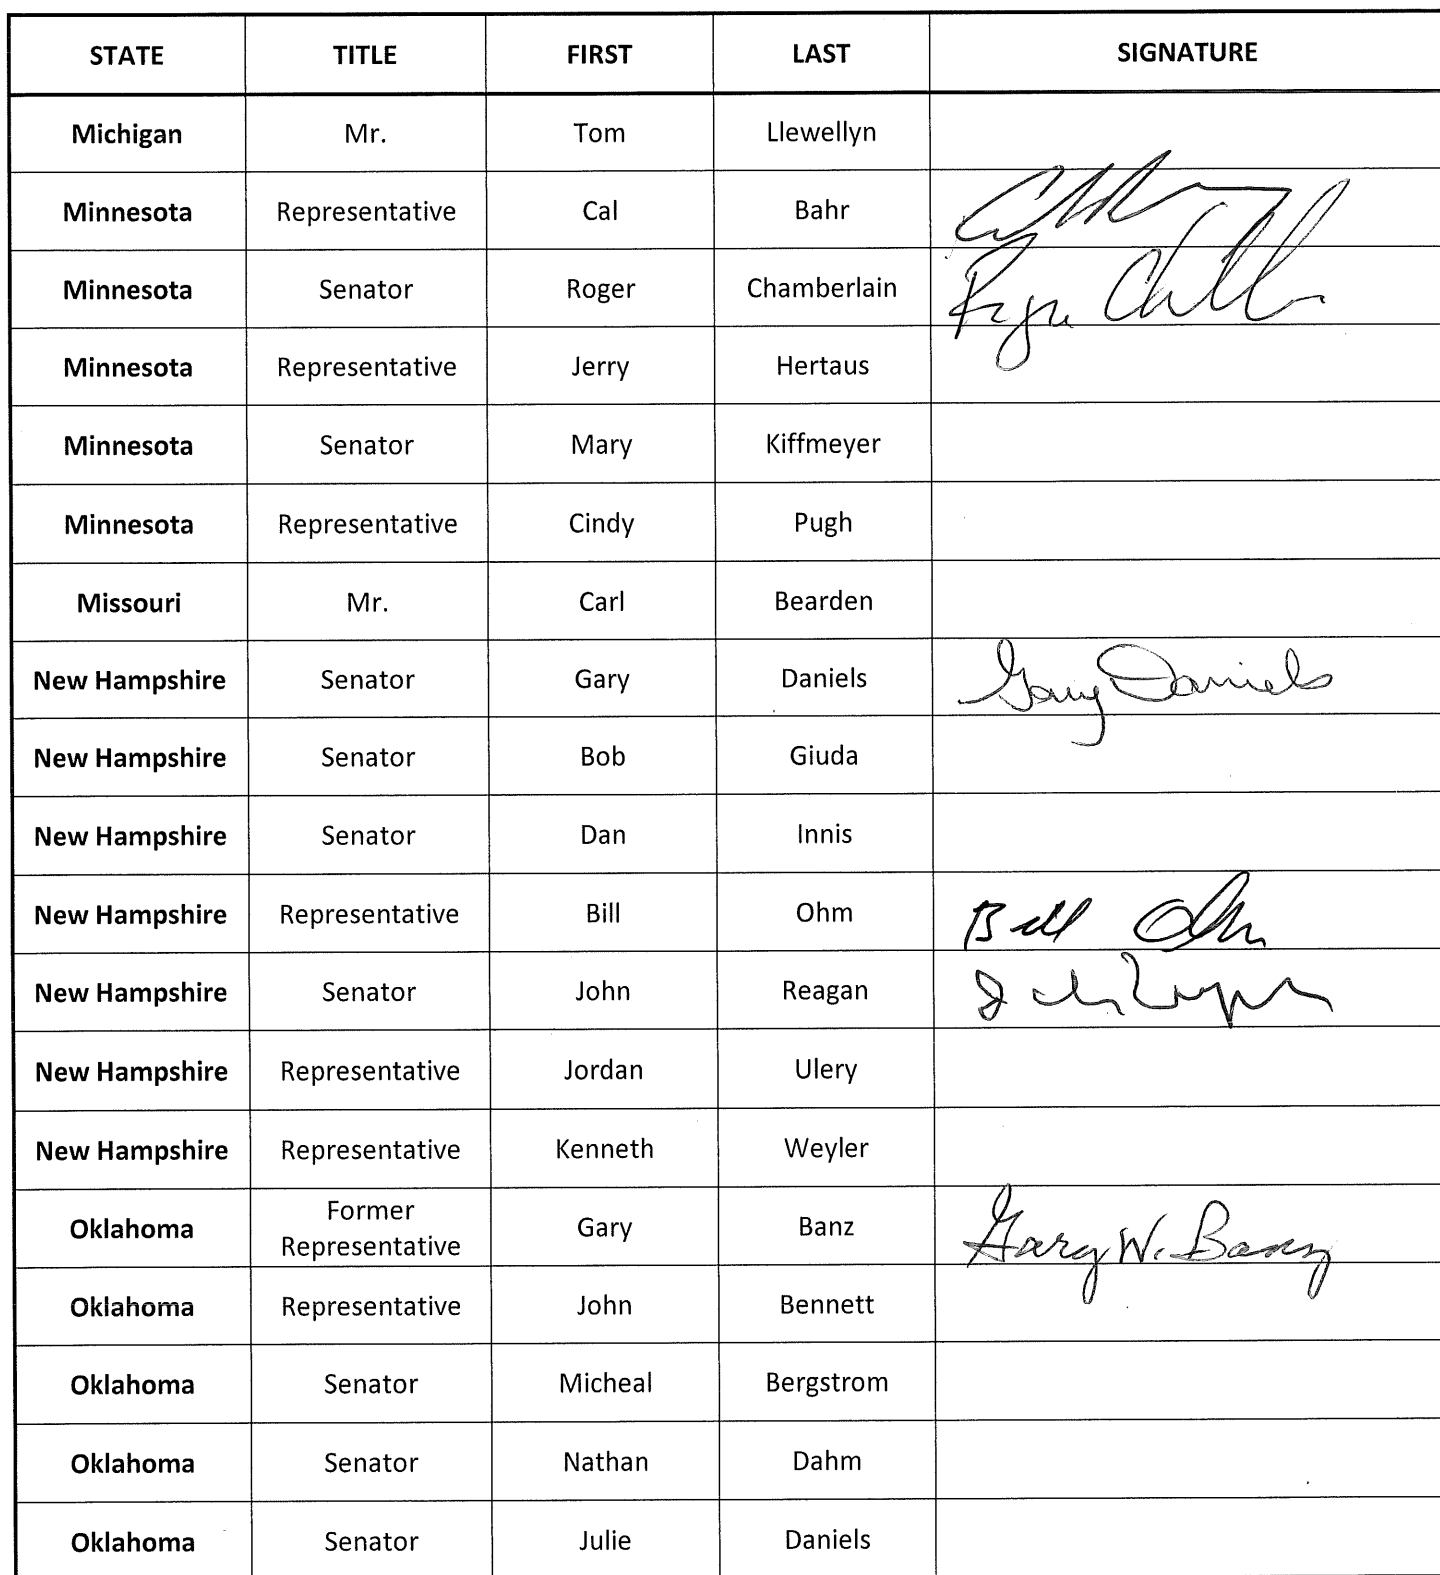 STATE TITLE FIRST LAST SIGNATURE
Michigan Mr. Tom Llewellyn
Minnesota Representative Cal Bahr
Minnesota Senator Roger Chamberlain
Minnesota Representative Jerry Hertaus
Minnesota Senator Mary Kiffmeyer
Minnesota Representative Cindy Pugh
Missouri Mr. Carl Bearden
New Hampshire Senator Gary Daniels Gary Daniels
New Hampshire Senator Bob Giuda
New Hampshire Senator Dan Innis
New Hampshire Representative Bill Ohm Bill Ohm
New Hampshire Senator John Reagan
New Hampshire Representative Jordan Ulery
New Hampshire Representative Kenneth Weyler
Oklahoma Former Representative Gary Banz Gary W. Banz
Oklahoma Representative John Bennett
Oklahoma Senator Micheal Bergstrom
Oklahoma Senator Nathan Dahm
Oklahoma Senator Julie Daniels